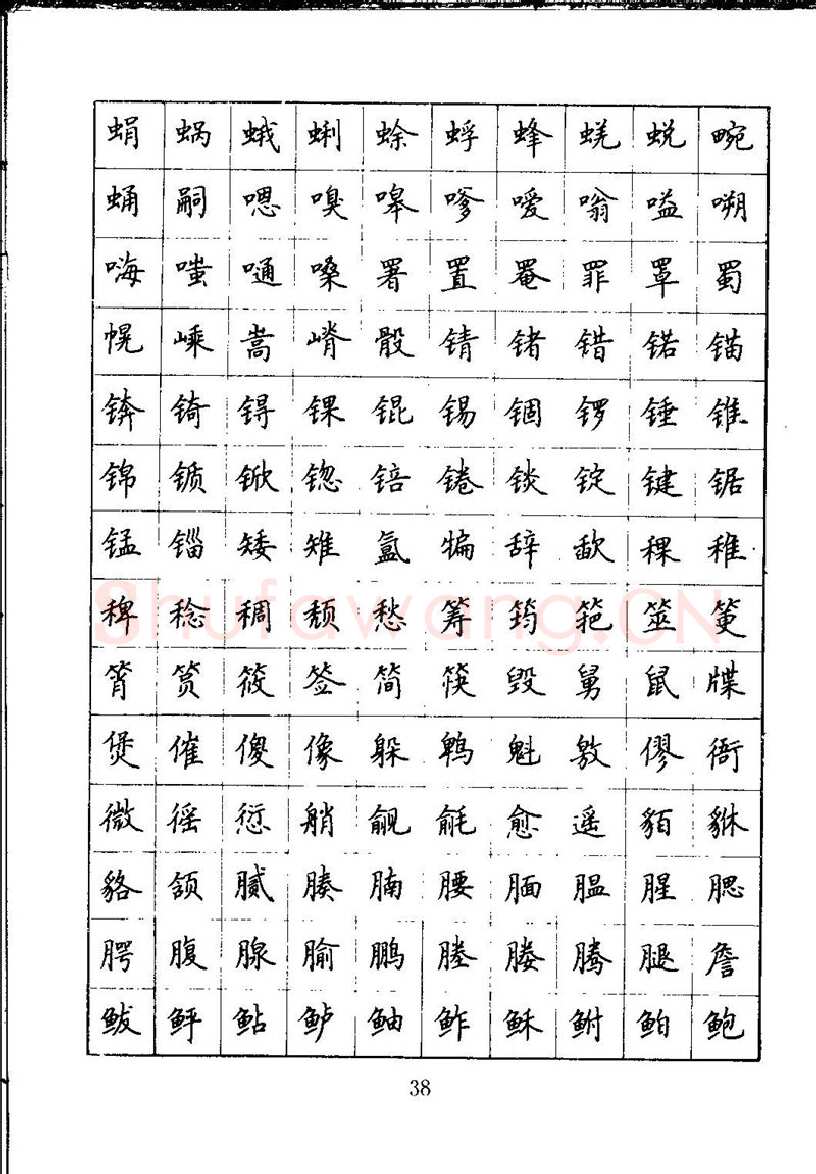 蜎 蜗 蛾 蜊 蜍 蜉 蜂 蜣 蜕 畹
蛹 嗣 嗯 嗅 嗥 嗲 嗳 嗡 嗌 嗍
嗨 嗤 嗵 嗓 署 置 罨 罪 罩 蜀
幌 嵊 嵩 嵴 骰 锖 锗 错 锘 锚
锛 锜 锝 锞 锟 锡 锢 锣 锤 锥
锦 锧 锨 锪 锫 锩 锬 锭 键 锯
锰 锱 矮 雉 氲 犏 辞 歃 稞 稚
稗 稔 稠 颓 愁 筹 筠 筢 筮 筻
筲 筼 筱 签 简 筷 毁 舅 鼠 牒
煲 催 傻 像 躲 鹎 魁 敫 僇 衙
微 徭 愆 艄 觎 毹 愈 遥 貊 貅
貉 颔 腻 腠 腩 腰 腼 腽 腥 腮
腭 腹 腺 腧 鹏 塍 媵 腾 腿 詹
鲅 鲆 鲇 鲈 鲉 鲊 稣 鲋 鲌 鲍
38
Shufawang.CN